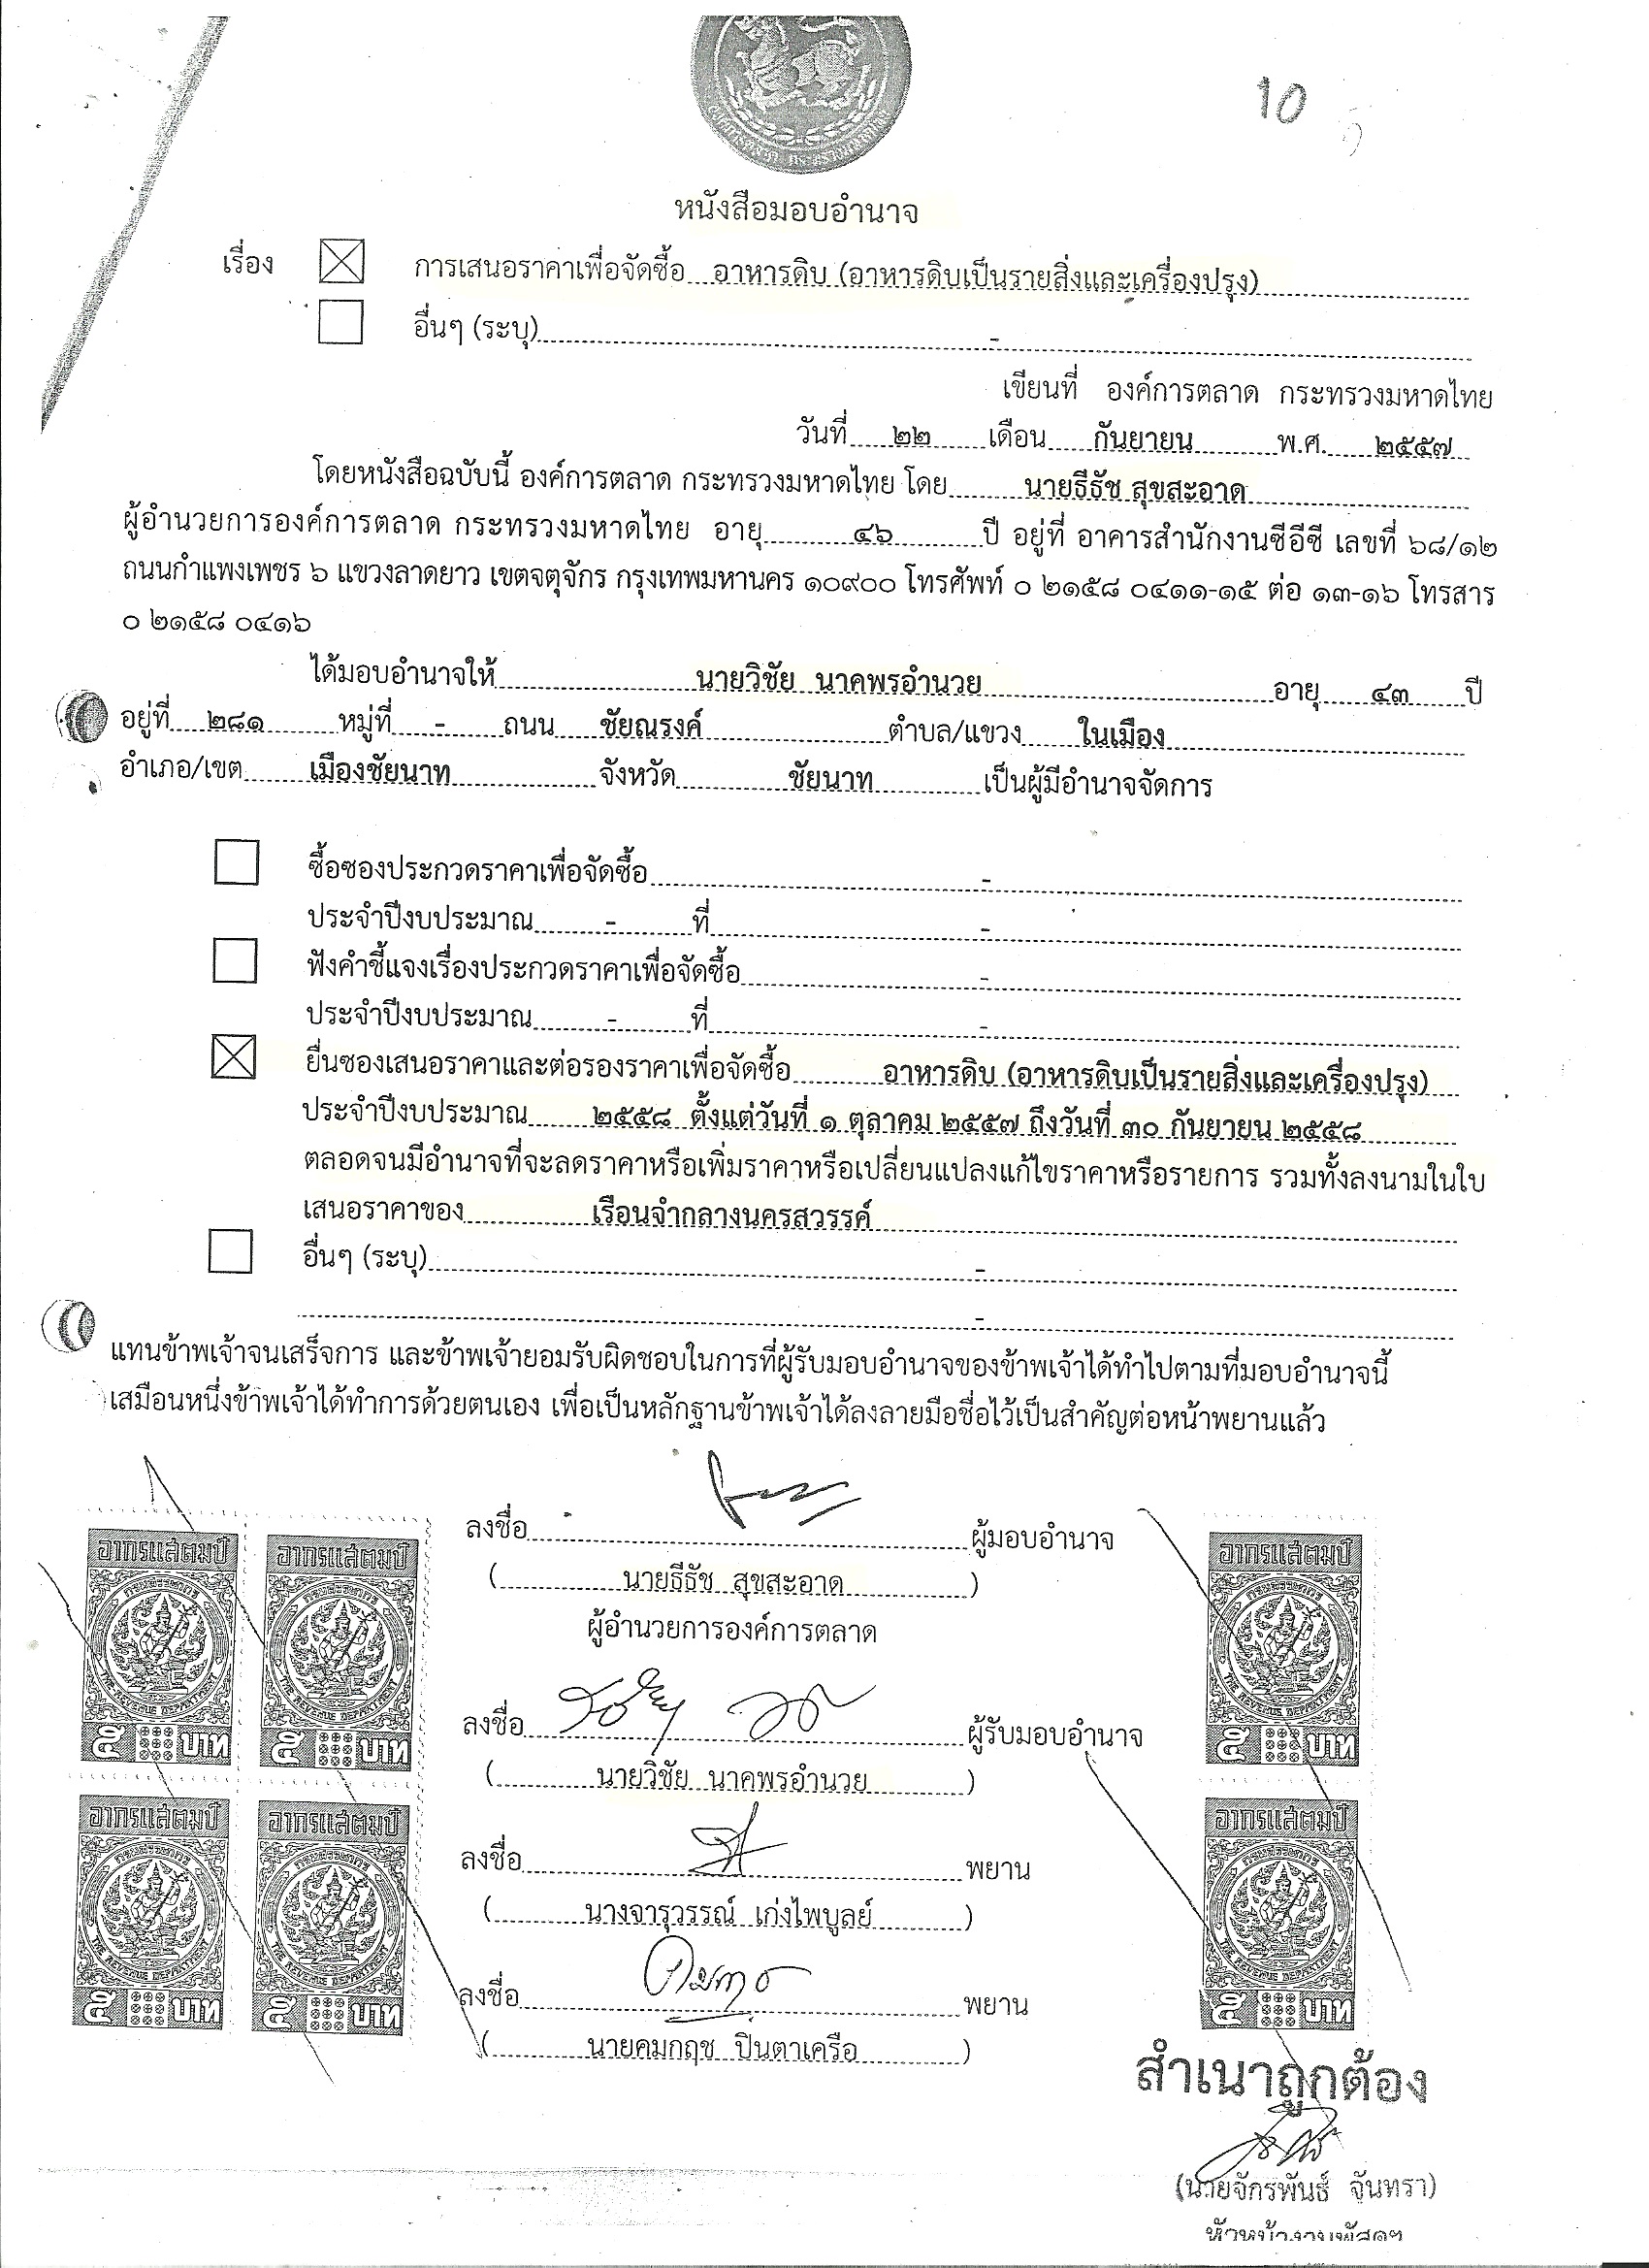 10
หนังสือมอบอำนาจ
เรื่อง ☒ การเสนอราคาเพื่อจัดซื้อ อาหารดิบ (อาหารดิบเป็นรายสิ่งและเครื่องปรุง)
☐ อื่นๆ (ระบุ) -
เขียนที่ องค์การตลาด กระทรวงมหาดไทย
วันที่ ๒๒ เดือน กันยายน พ.ศ. ๒๕๕๗
โดยหนังสือฉบับนี้ องค์การตลาด กระทรวงมหาดไทย โดย นายธีธัช สุขสะอาด
ผู้อำนวยการองค์การตลาด กระทรวงมหาดไทย อายุ ๔๖ ปี อยู่ที่ อาคารสำนักงานซีอีซี เลขที่ ๖๘/๑๒
ถนนกำแพงเพชร ๖ แขวงลาดยาว เขตจตุจักร กรุงเทพมหานคร ๑๐๙๐๐ โทรศัพท์ ๐ ๒๑๕๘ ๐๔๑๑-๑๕ ต่อ ๑๓-๑๖ โทรสาร
๐ ๒๑๕๘ ๐๔๑๖
ได้มอบอำนาจให้ นายวิชัย นาคพรอำนวย อายุ ๔๓ ปี
อยู่ที่ ๒๘๑ หมู่ที่ - ถนน ชัยณรงค์ ตำบล/แขวง ในเมือง
อำเภอ/เขต เมืองชัยนาท จังหวัด ชัยนาท เป็นผู้มีอำนาจจัดการ
☐ ซื้อซองประกวดราคาเพื่อจัดซื้อ -
ประจำปีงบประมาณ - ที่ -
☐ ฟังคำชี้แจงเรื่องประกวดราคาเพื่อจัดซื้อ -
ประจำปีงบประมาณ - ที่ -
☒ ยื่นซองเสนอราคาและต่อรองราคาเพื่อจัดซื้อ อาหารดิบ (อาหารดิบเป็นรายสิ่งและเครื่องปรุง)
ประจำปีงบประมาณ ๒๕๕๘ ตั้งแต่วันที่ ๑ ตุลาคม ๒๕๕๗ ถึงวันที่ ๓๐ กันยายน ๒๕๕๘
ตลอดจนมีอำนาจที่จะลดราคาหรือเพิ่มราคาหรือเปลี่ยนแปลงแก้ไขราคาหรือรายการ รวมทั้งลงนามในใบ
เสนอราคาของ เรือนจำกลางนครสวรรค์
☐ อื่นๆ (ระบุ) -
-
แทนข้าพเจ้าจนเสร็จการ และข้าพเจ้ายอมรับผิดชอบในการที่ผู้รับมอบอำนาจของข้าพเจ้าได้ทำไปตามที่มอบอำนาจนี้
เสมือนหนึ่งข้าพเจ้าได้ทำการด้วยตนเอง เพื่อเป็นหลักฐานข้าพเจ้าได้ลงลายมือชื่อไว้เป็นสำคัญต่อหน้าพยานแล้ว
ลงชื่อ ผู้มอบอำนาจ
( นายธีธัช สุขสะอาด )
ผู้อำนวยการองค์การตลาด
ลงชื่อ ผู้รับมอบอำนาจ
( นายวิชัย นาคพรอำนวย )
ลงชื่อ พยาน
( นางจารุวรรณ์ เก่งไพบูลย์ )
ลงชื่อ พยาน
( นายคมกฤช ปินตาเครือ )
อากรแสตมป์ อากรแสตมป์ อากรแสตมป์
THE REVENUE DEPARTMENT THE REVENUE DEPARTMENT THE REVENUE DEPARTMENT
๕ บาท ๕ บาท ๕ บาท
อากรแสตมป์ อากรแสตมป์ อากรแสตมป์
THE REVENUE DEPARTMENT THE REVENUE DEPARTMENT THE REVENUE DEPARTMENT
๕ บาท ๕ บาท ๕ บาท
สำเนาถูกต้อง
(นายจักรพันธ์ จันทรา)